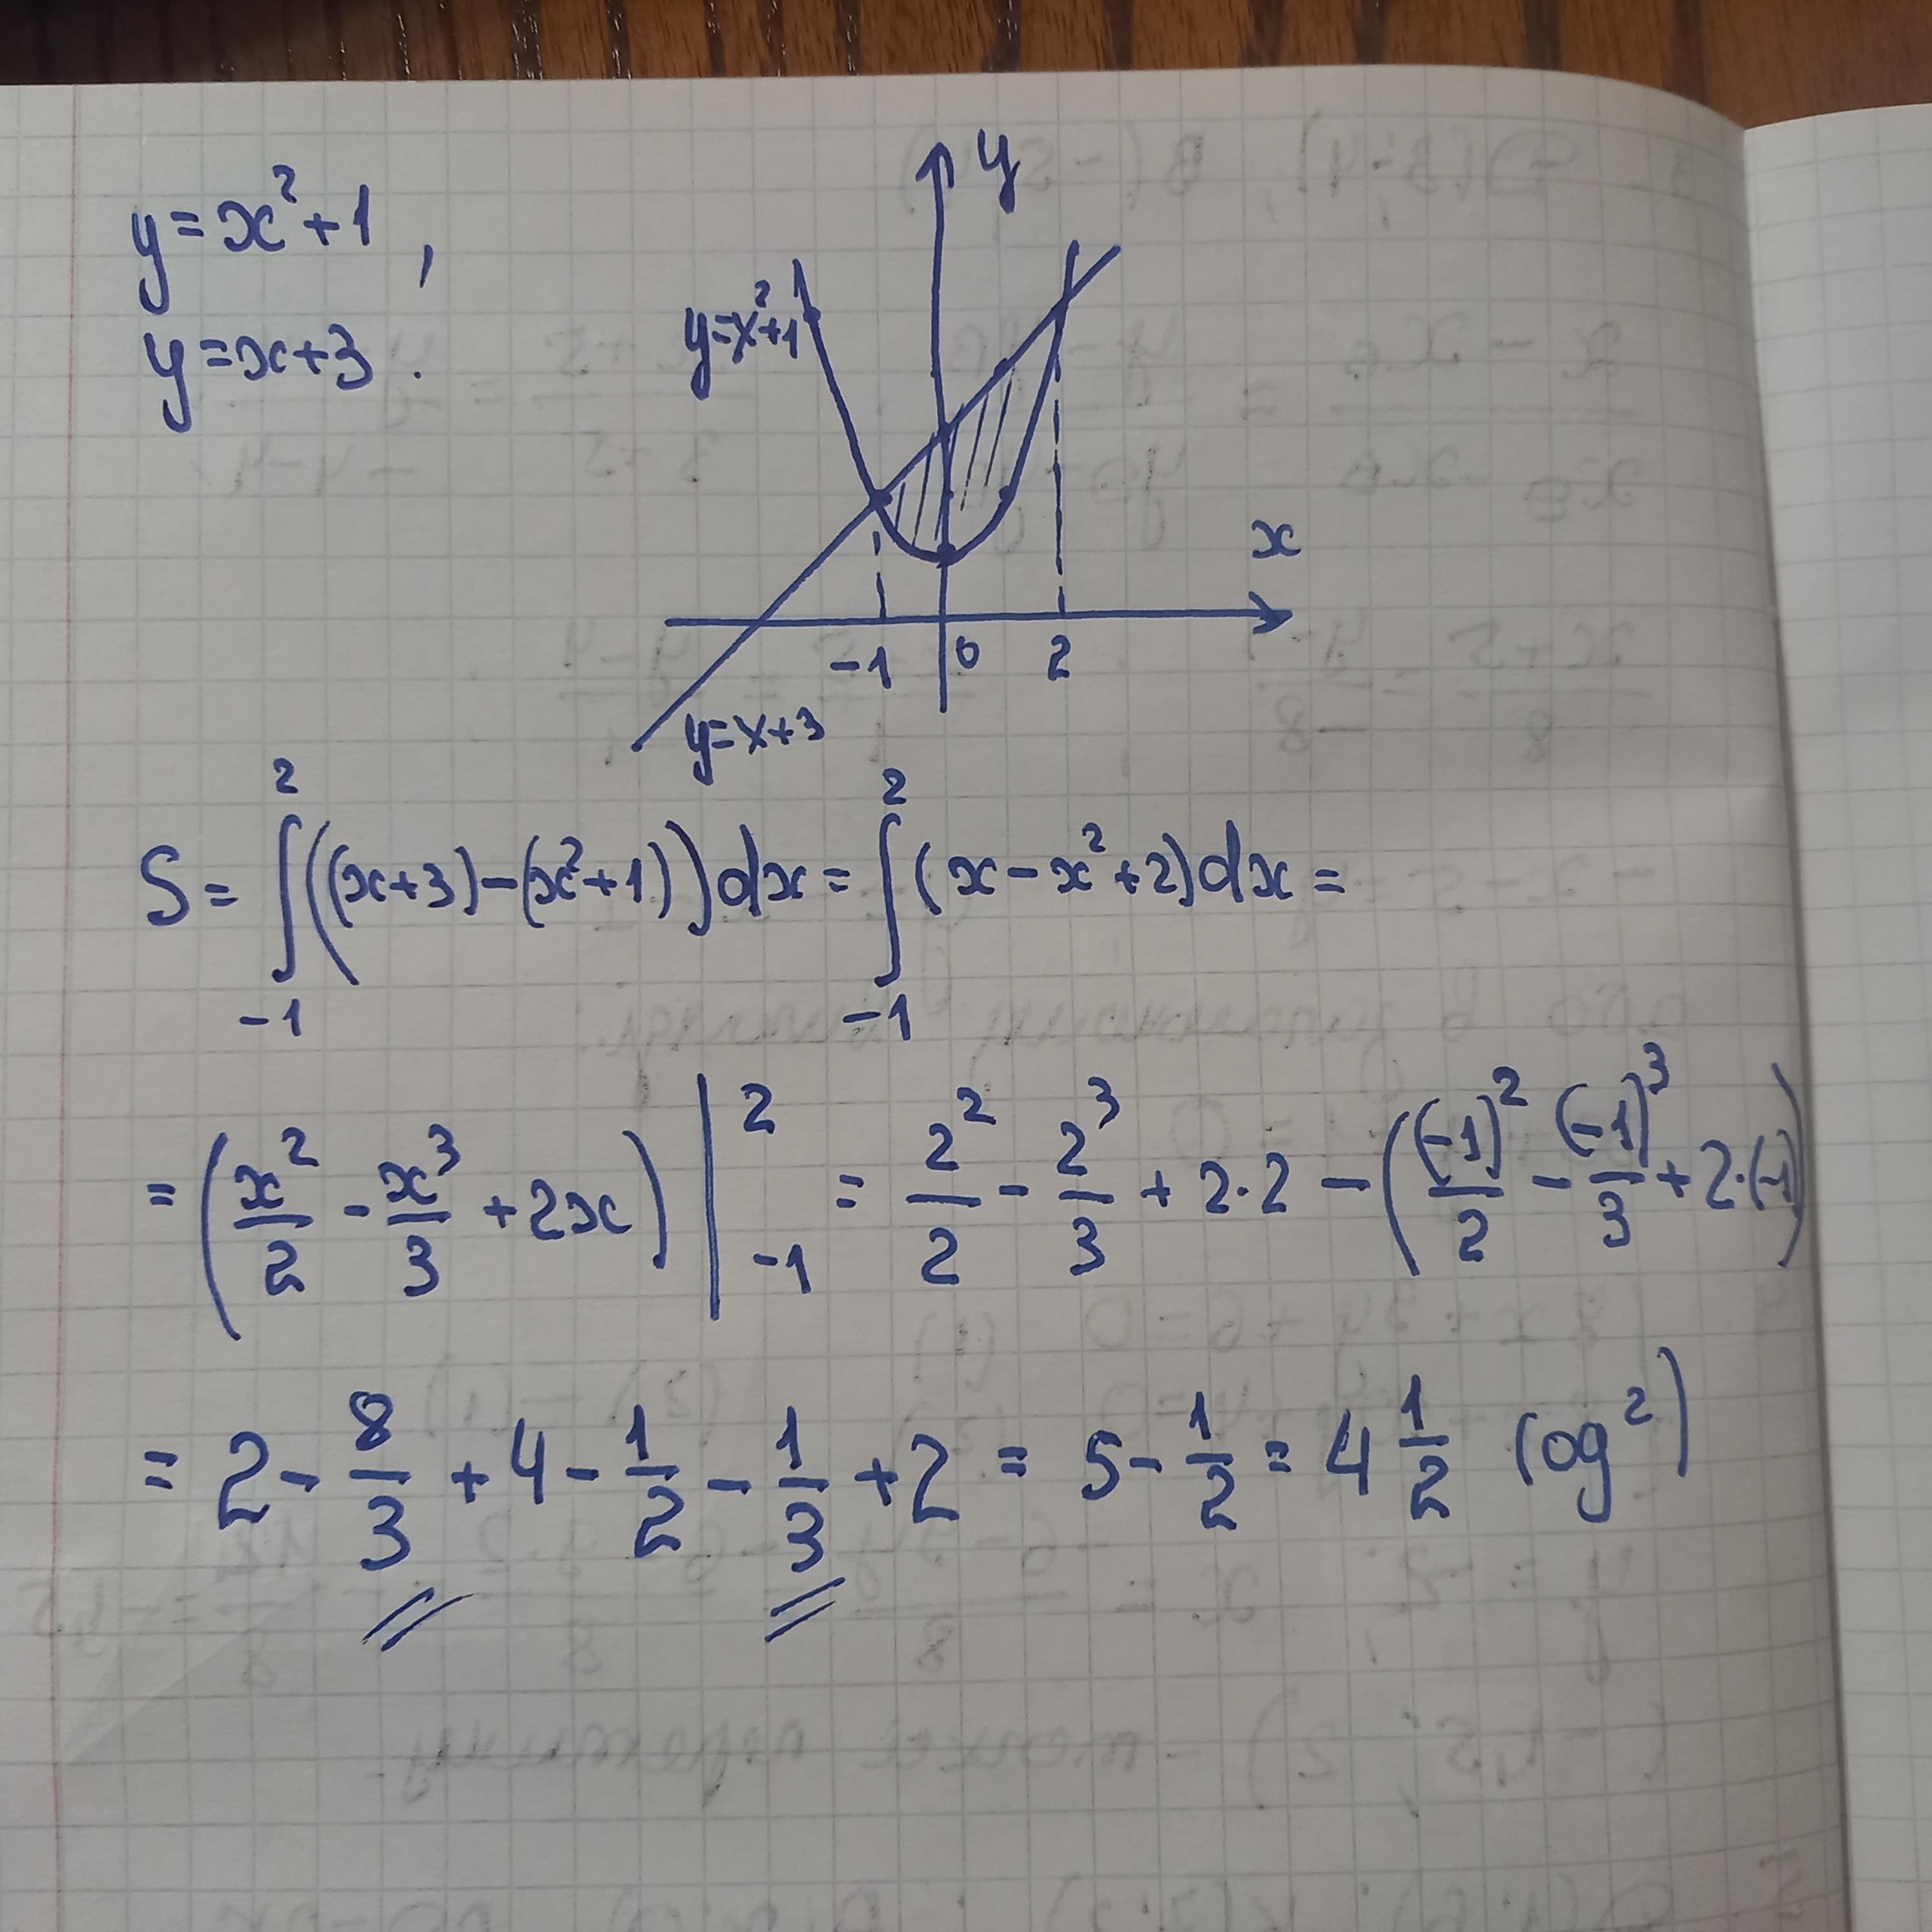 y = x² + 1,
y = x + 3.
y
y=x²+1
x
-1 0 2
y=x+3
S = ∫₋₁² ((x+3)-(x²+1))dx = ∫₋₁² (x - x² + 2)dx =
= (x²/2 - x³/3 + 2x) |₋₁² = 2²/2 - 2³/3 + 2·2 - ((-1)²/2 - (-1)³/3 + 2·(-1))
= 2 - 8/3 + 4 - 1/2 - 1/3 + 2 = 5 - 1/2 = 4 1/2 (од²)